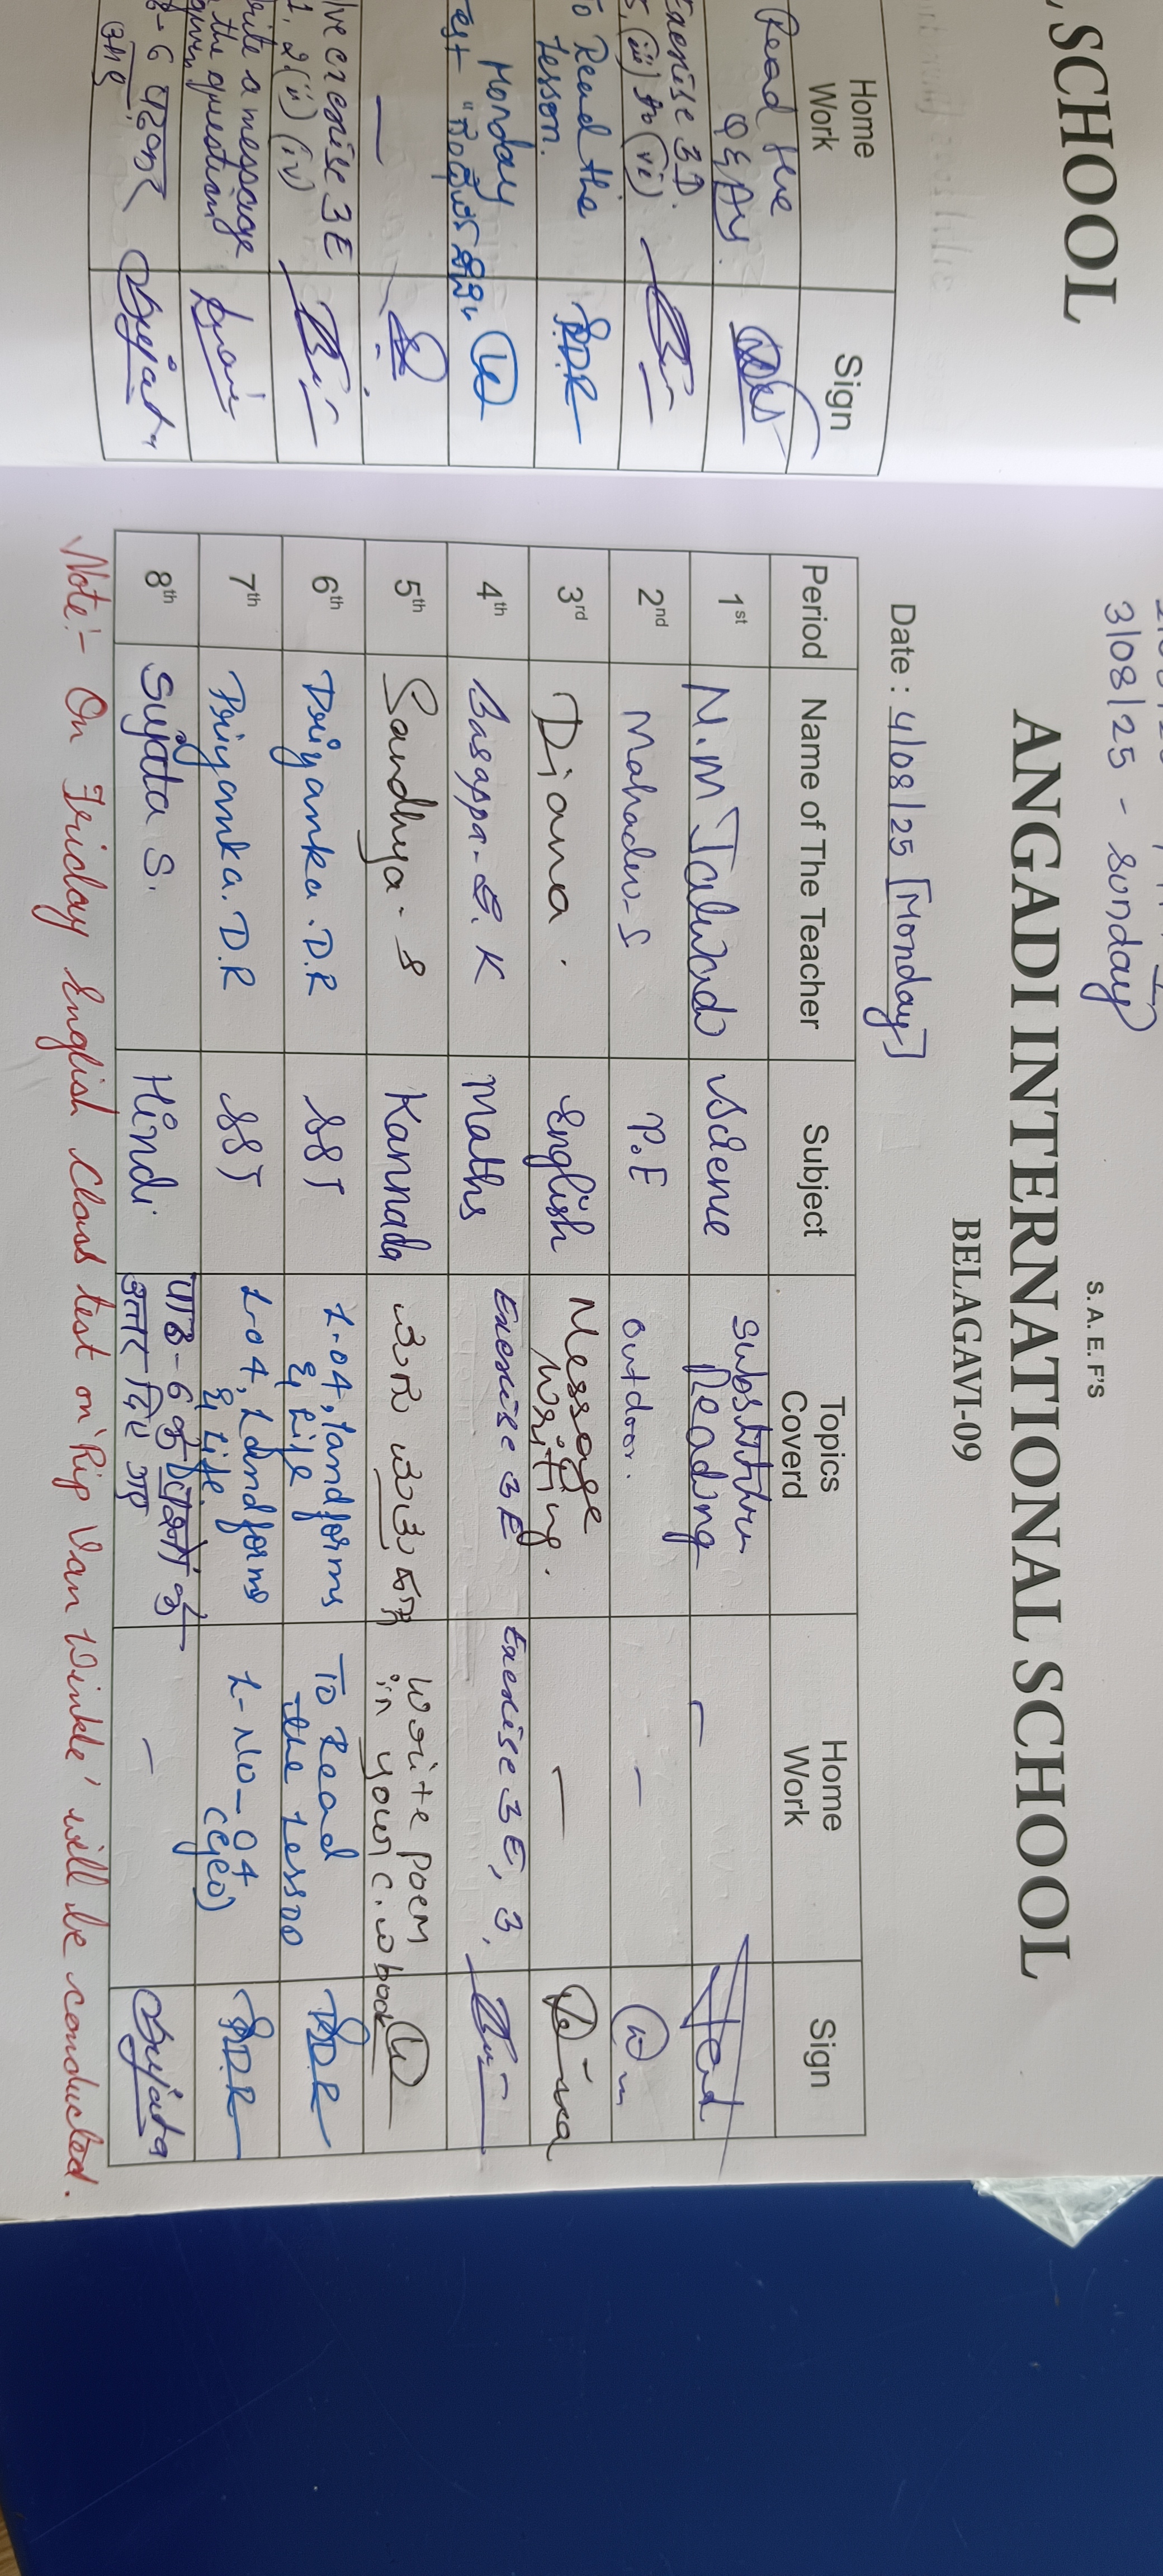 SCHOOL
Home
Work
Sign
Read the
Q & As.
Exercise 3D.
5, (iii) to (vi)
To Read the
Lesson.
P.D.R
Monday
Test
solve exercise 3E
1, 2 (ii) (iv)
write a message
the question
given
Sujata
3/08/25 - Sunday
S. A. E. F'S
ANGADI INTERNATIONAL SCHOOL
BELAGAVI-09
Date : 4/08/25 [Monday]
Period Name of The Teacher Subject Topics Coverd Home Work Sign
1st N.M Talwar Science Substitution Reading –
2nd Mahadev-S P.E outdoor. –
3rd Diana. English Message Writing. –
4th Basappa-B.K Maths Exercise 3E Exercise 3E, 3,
5th Sandhya-S Kannada Write poem in your C.W book
6th Priyanka.D.R SST L-04, Landforms & Life To Read the Lesson P.D.R
7th Priyanka.D.R SST L-04, Landforms & Life L-No-04 (Geo) P.D.R
8th Sujata S. Hindi पाठ-6 के प्रश्नों के उत्तर दिए गए – Sujata
Note:- On Friday English class test on 'Rip Van Winkle' will be conducted.